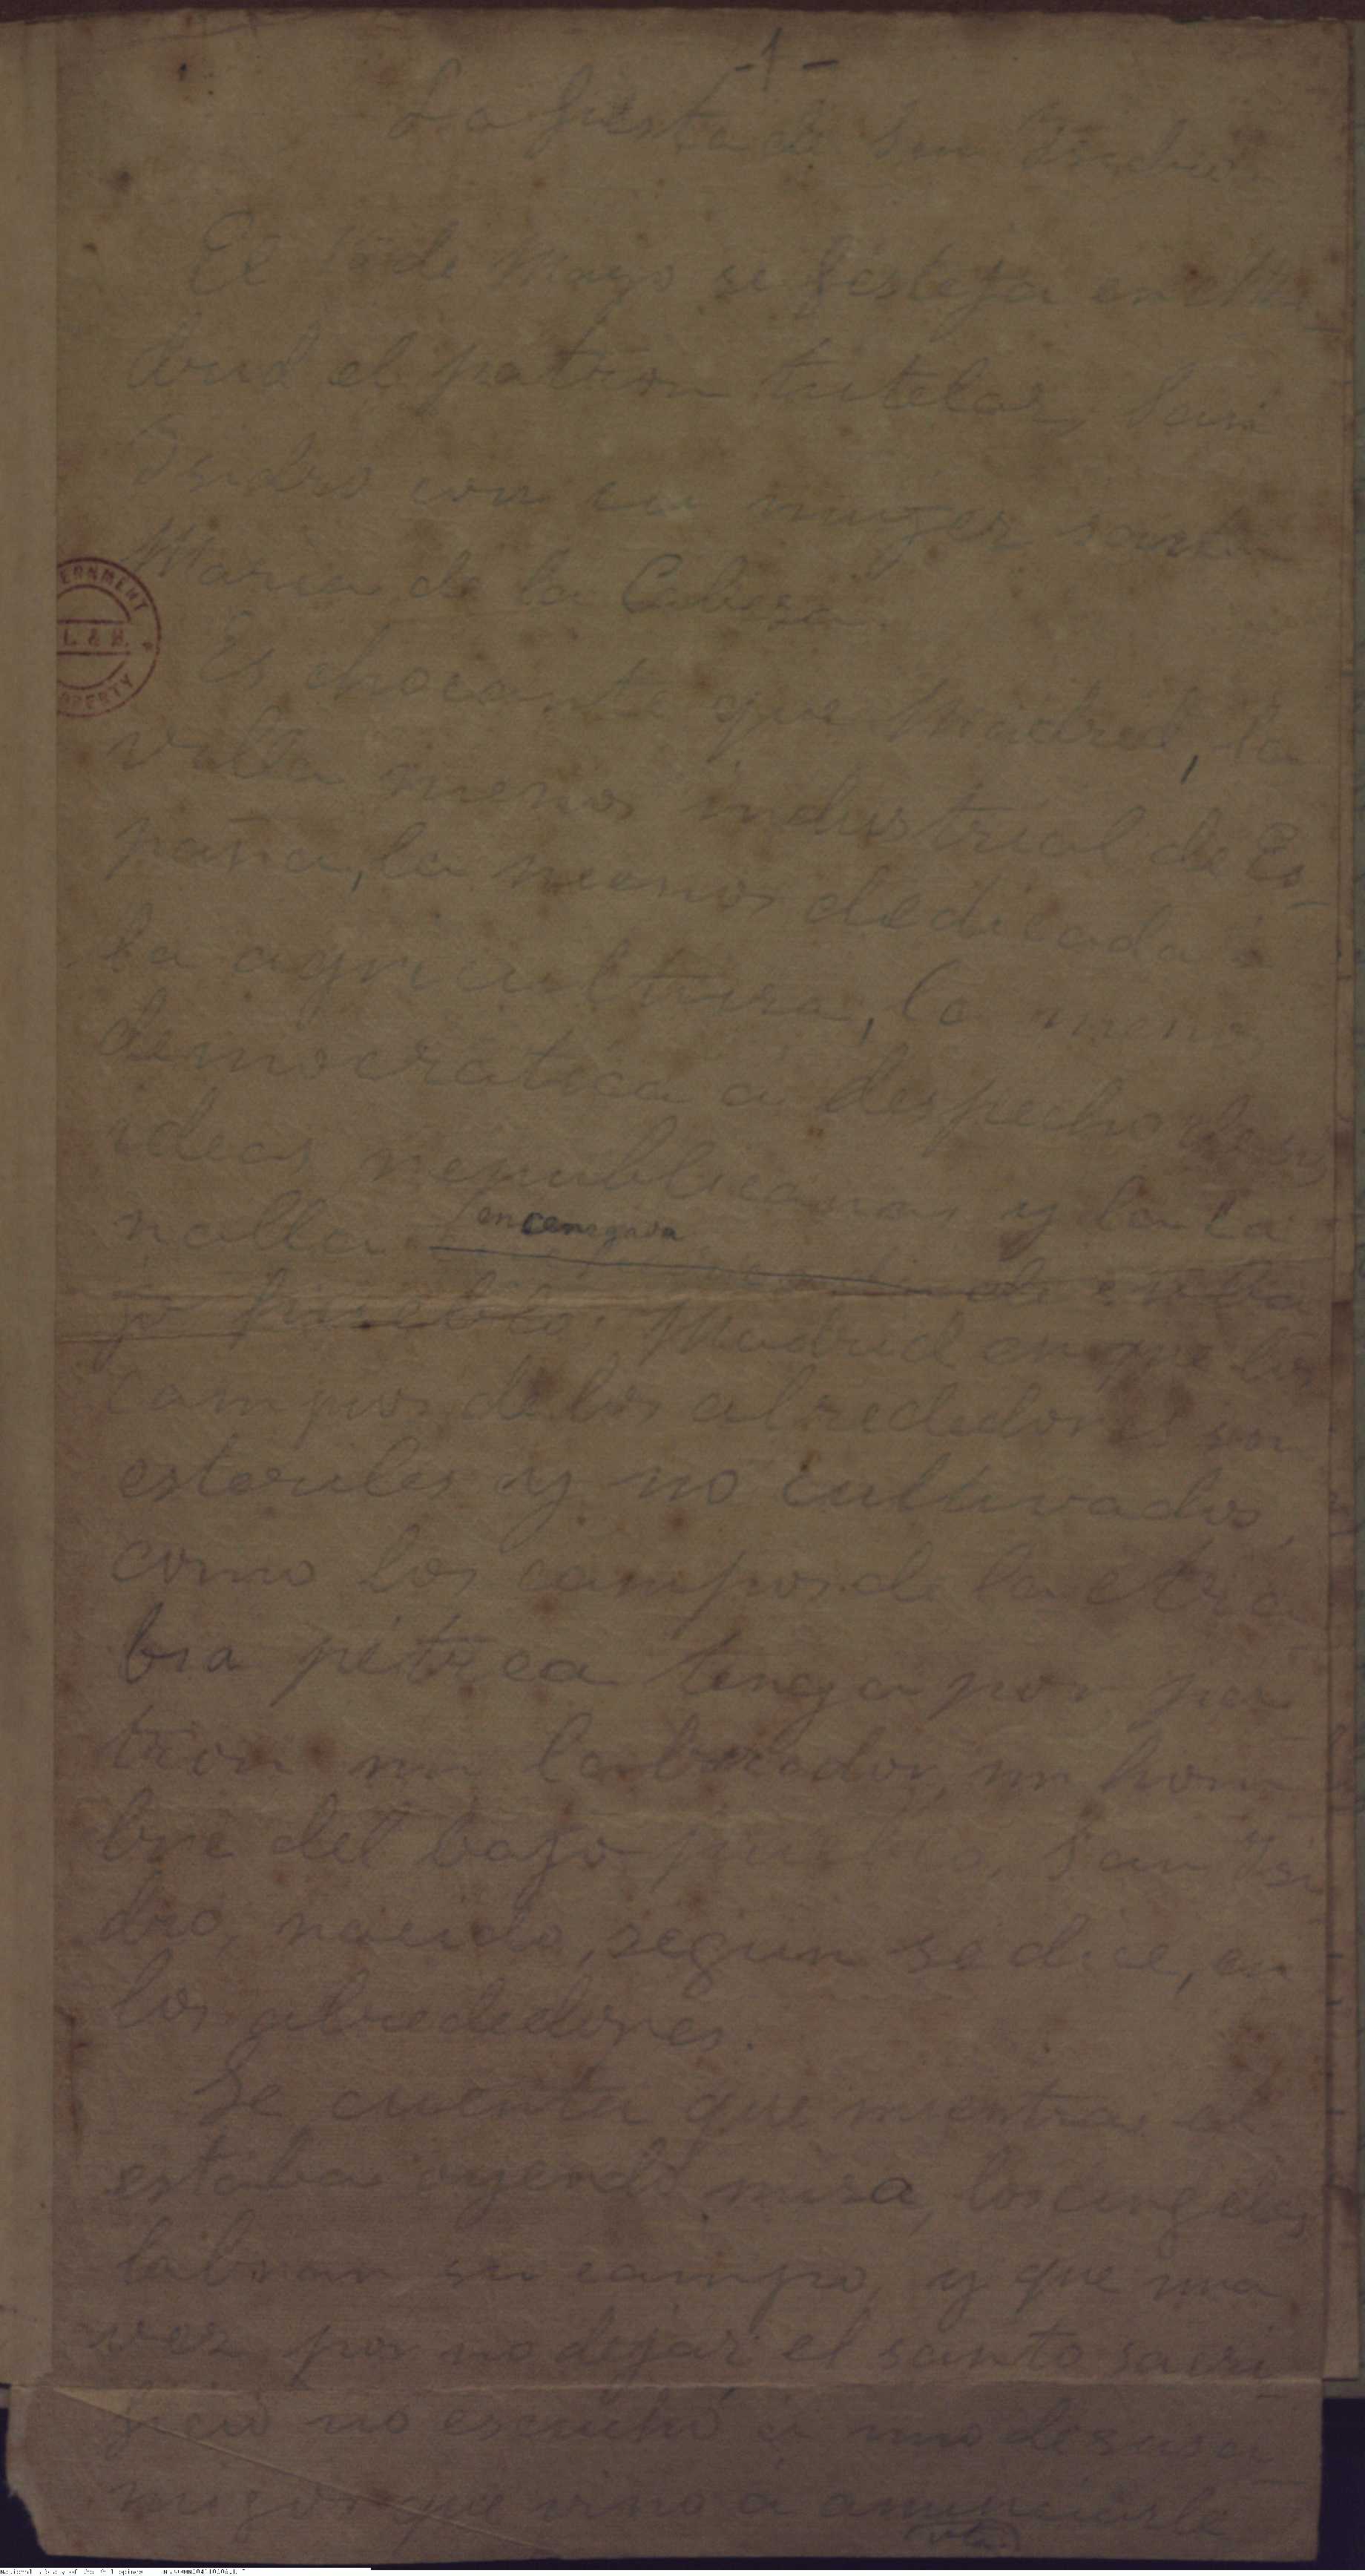 -1-
La fiesta de San Isidro
El 15 de Mayo se festeja en Ma-
drid el patron tutelar, San
Isidro con su muger santa
Maria de la Cabeza.
Es chocante que Madrid, la
villa menos industrial de Es-
paña, la menos dedicada á
la agricultura, la menos
democratica a despecho de sus
ideas republicanas y la ca
nalla encenegada
jo pueblo. Madrid en que los
campos de los alrededores son
esteriles y no cultivados,
como los campos de la Ara
bia pétrea tenga por pa
tron un labrador, un hom
bre del bajo pueblo, San Isi
dro, nacido, segun se dice, en
los alrededores.
Se cuenta que mientras él
estaba oyendo misa, los angeles
labran su campo, y que una
vez por no dejar el santo sacri
ficio no escuchó á uno de sus a
migos que vino á anunciarle
GOVERNMENT
L. & M.
PROPERTY